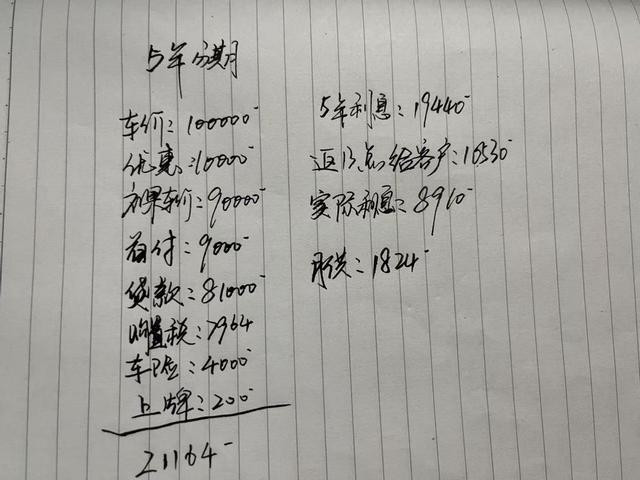 5年分期
车价:100000-
优惠:10000-
裸车价:90000-
首付:9000-
贷款:81000-
购置税:7964
车险:4000-
上牌:200-
21164-
5年利息:19440-
返13点给客户:10530-
实际利息:8910-
月供:1824-